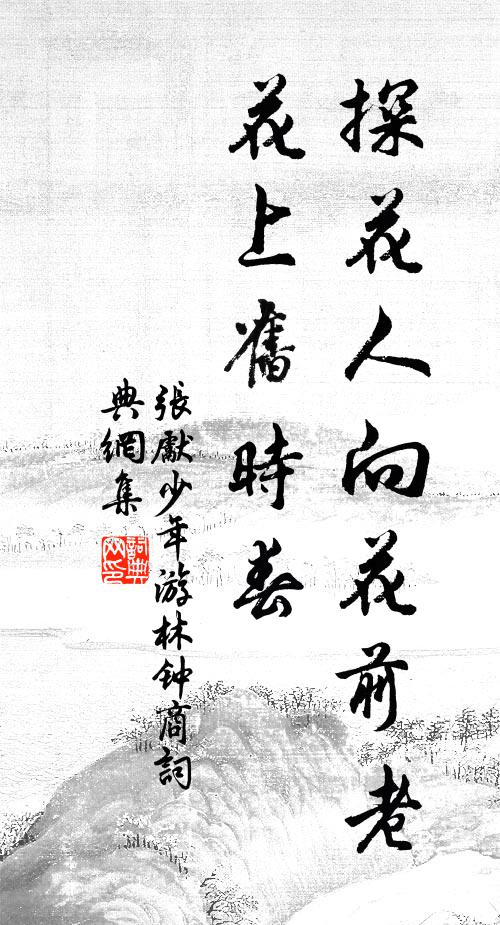 探花人向花前老
花上舊時春
張獻少年游林钟商詞
典網集
詞典网印